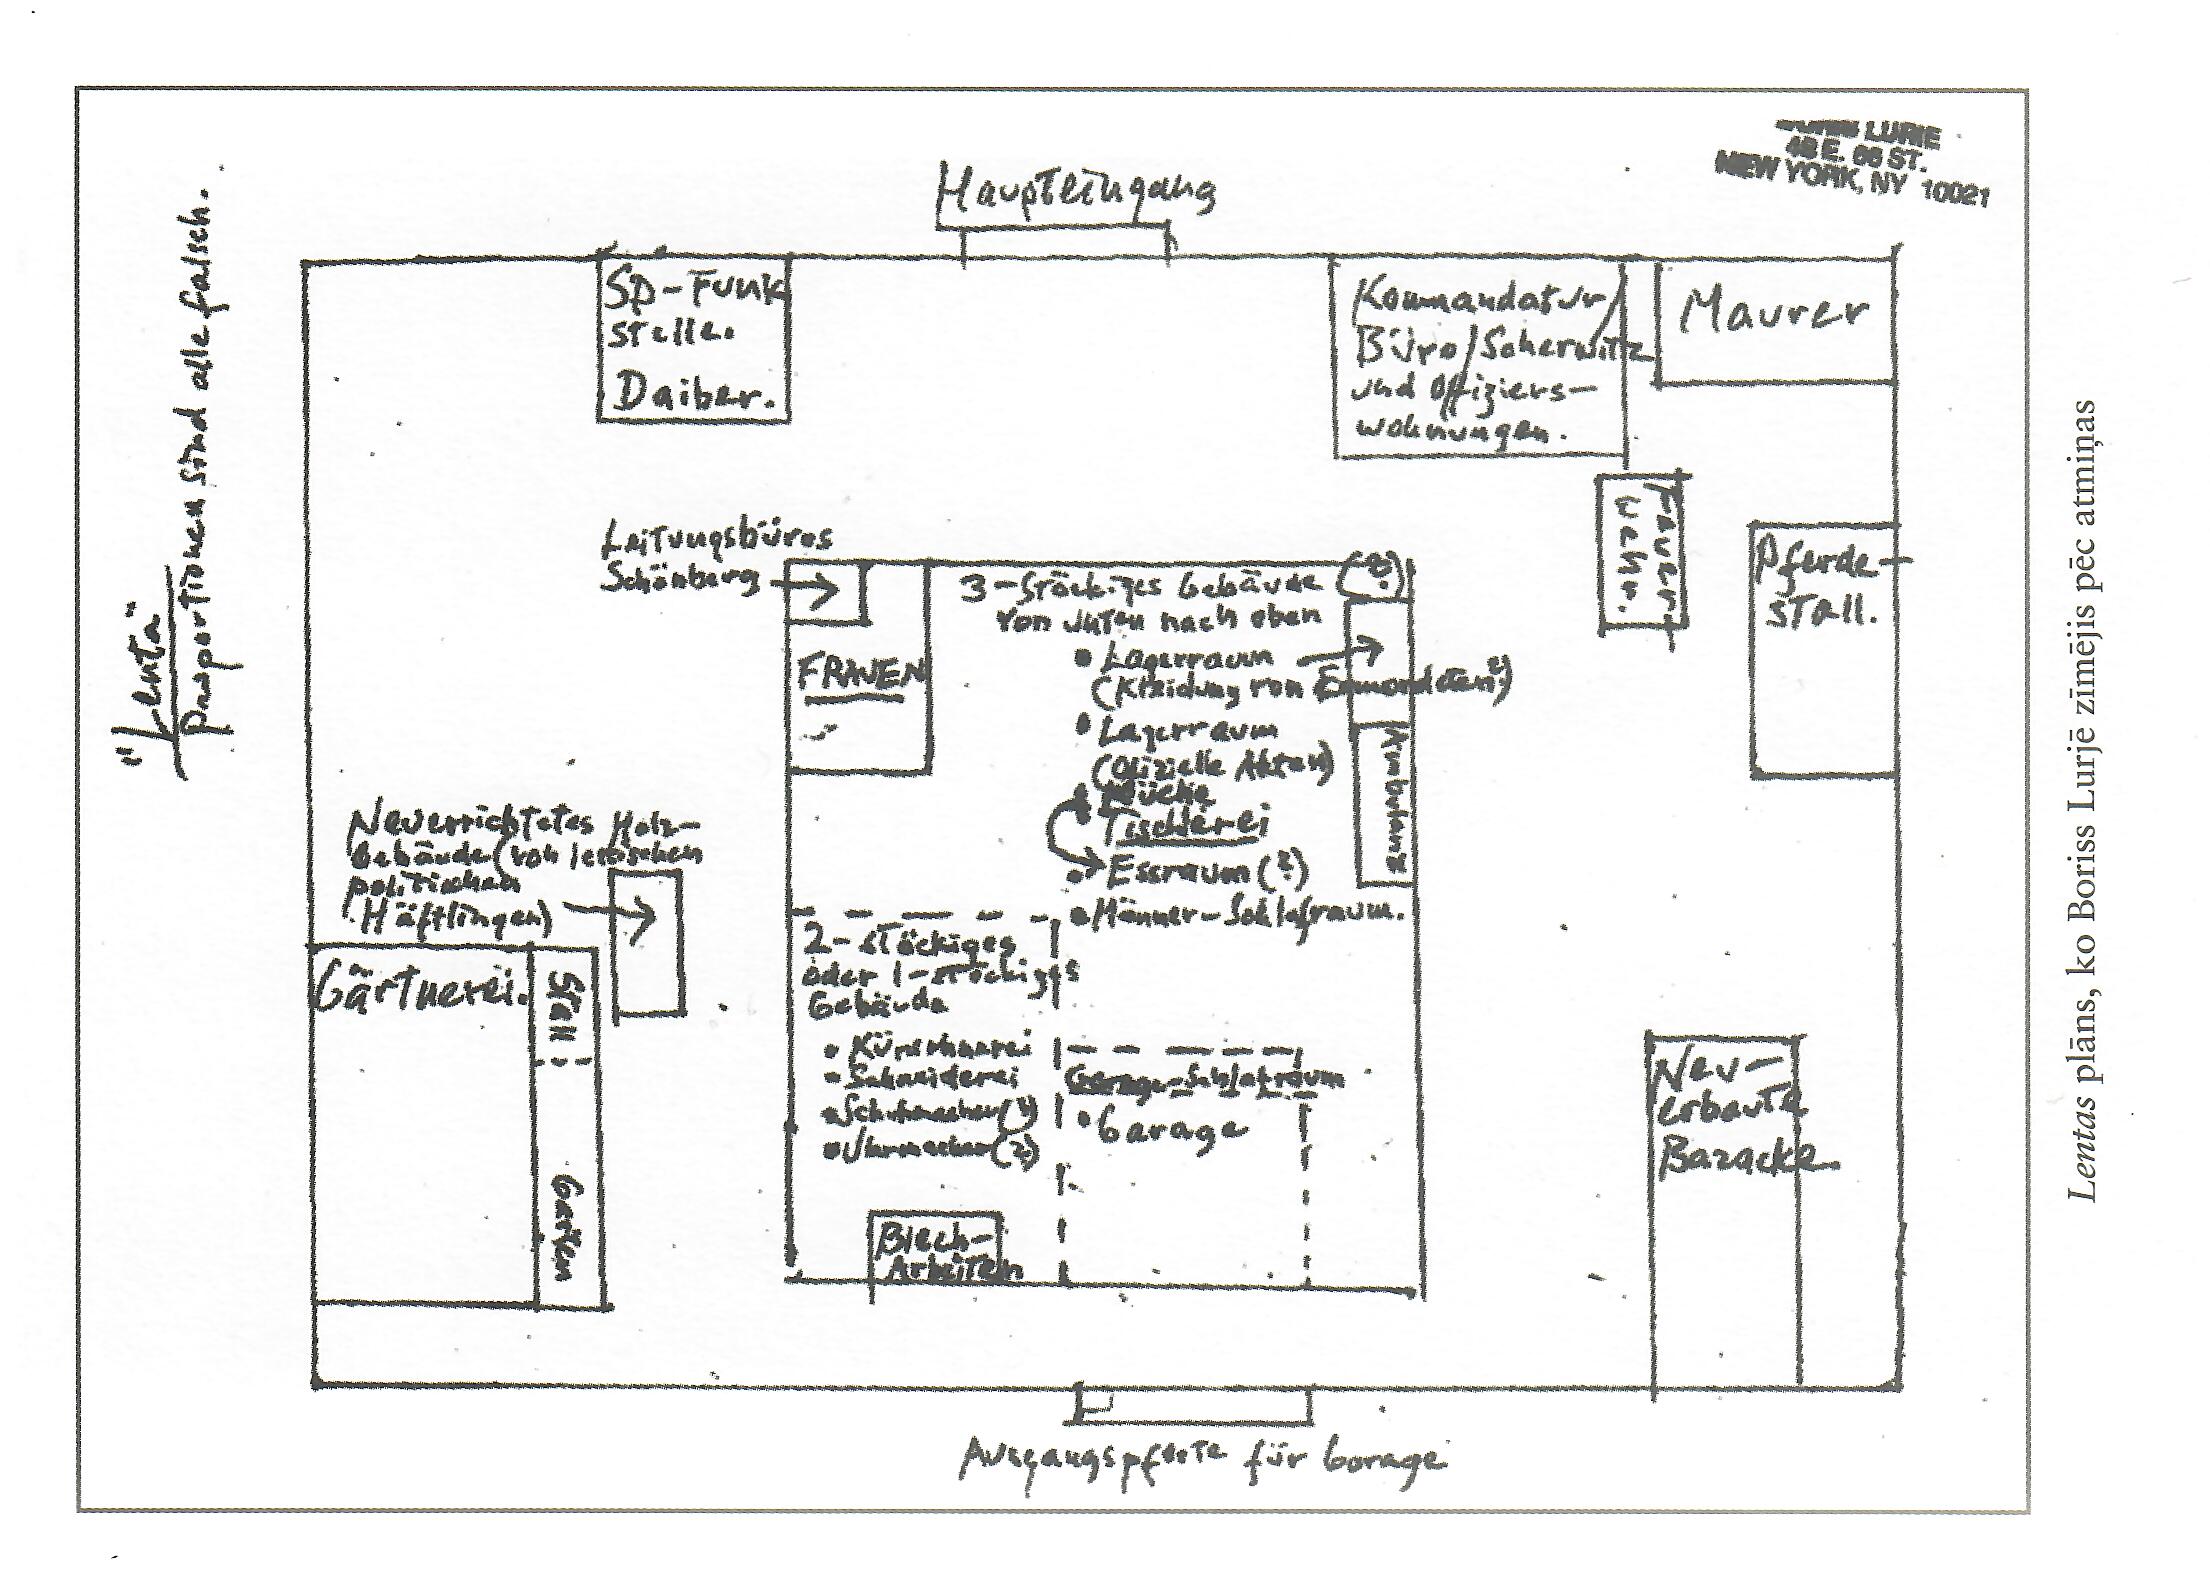 BORIS LURIE
48 E. 66 ST.
NEW YORK, NY 10021
"Lenta"
Proportionen sind alle falsch.
Haupteingang
SD-Funk
stelle.
Daiber.
Kommandatur/
Büro/Scherwitz
und Offiziers-
wohnungen.
Maurer
Pferde-
stall.
Leitungsbüros
Schönberg
FRAUEN
3-stöckiges Gebäude (?)
von unten nach oben
• Lagerraum
(Kleidung von Ermordeten?)
• Lagerraum
(Offizielle Akten)
• Küche
Tischlerei
• Essraum (?)
• Männer-Schlafraum.
Neuerrichtetes Holz-
Gebäude (von lettischen
politischen
Häftlingen)
Gärtnerei.
Stall
Garten
2-stöckiges
oder 1-stöckiges
Gebäude
• Kürschnerei
• Schneiderei
• Schuhmacher (?)
• Uhrmacher (?)
Garage-Schlafraum
• Garage
Blech-
Arbeiten
Neu-
erbaute
Baracke.
Ausgangspforte für Garage
Lentas plāns, ko Boriss Lurjē zīmējis pēc atmiņas